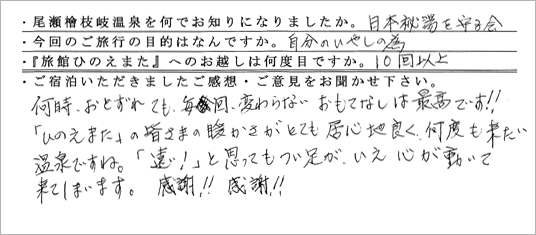 ・尾瀬檜枝岐温泉を何でお知りになりましたか。日本秘湯を守る会
・今回のご旅行の目的はなんですか。自分のいやしの為
・『旅館ひのえまた』へのお越しは何度目ですか。10回以上
・ご宿泊いただきましたご感想・ご意見をお聞かせ下さい。
何時、おとずれても、毎回、変わらない おもてなしは最高です!!
「ひのえまた」の皆さまの暖かさがとても居心地良く、何度も来たい
温泉ですね。「遠い!」と思ってもつい足が、いえ 心が動いて
来てしまいます。 感謝!! 感謝!!